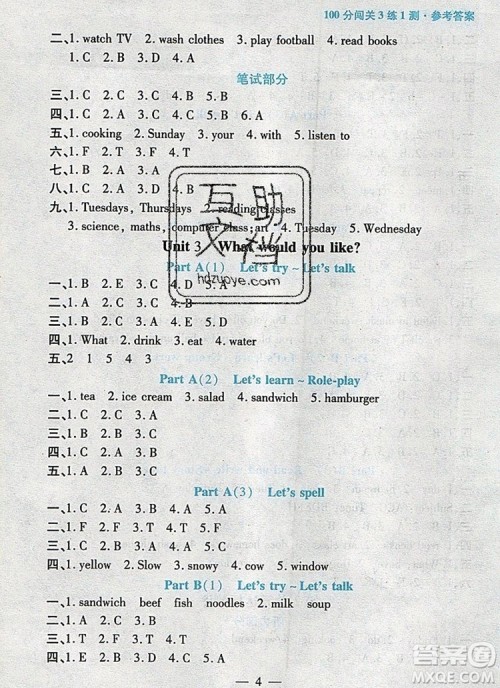 100分闯关3练1测·参考答案
二、1. watch TV 2. wash clothes 3. play football 4. read books
笔试部分
三、1. C 2. C 3. A 4. B 5. B
四、1. C 2. C 3. A 4. B 5. B 6. A
五、1. cooking 2. Sunday 3. your 4. with 5. listen to
六、1. T 2. F 3. F 4. T
七、1. B 2. A 3.
八、1. C 2. D 3. A 4. B
九、1. Tuesdays, Thursdays 2. reading classes
3. science, maths, computer class; art 4. Tuesday 5. Wednesday
Unit 3 What would you like?
Part A(1) Let's try ~ Let's talk
一、1. B 2. E 3. C 5. A
二、1. B 2. A 3.
三、1. C 2. D 3. A 4. B 5. E
四、1. What 2. drink 3. eat 4. water
五、2 1 5 4 3
Part A(2) Let's learn ~ Role-play
一、1. tea 2. ice cream 3. salad 4. sandwich 5. hamburger
二、1. C 2. C 3. A
三、1. B 2. A 3. C 4. A 5. C
四、1. C 2. A 3. D 4. B
Part A(3) Let's spell
一、1. C 2. B 3. A 4. A 5. C
二、1. F 2. F 3. T 4. T 5. T
三、1. C 2. B 3. C 4. A
四、1. yellow 2. Slow 3. snowy 4. cow 5. window
Part B(1) Let's try ~ Let's talk
一、1. sandwich beef fish noodles 2. milk soup
二、1. B 2. D 3. A 4. C
三、1. T 2. F 3. F 4. T
四、1. E 2. D 3. C 4. A 5. B
— 4 —
互助文档
hdzuoye.com
作业帮
MXQE.COM